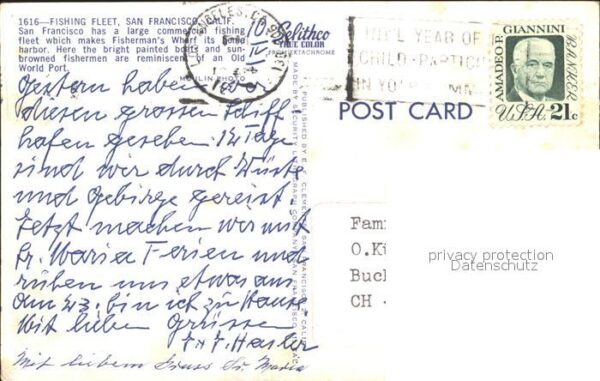 1616—FISHING FLEET, SAN FRANCISCO, CALIF.
San Francisco has a large commercial fishing
fleet which makes Fisherman's Wharf its home
harbor. Here the bright painted boats and sun-
browned fishermen are reminiscent of an Old
World Port.
MOULIN PHOTO
Selithco
TRUE COLOR
FROM EKTACHROME
INT'L YEAR OF
CHILD-PARTICI
IN YOUR COMM
AMADEO P. GIANNINI
BANKER
U.S.A. 21c
POST CARD
Gestern haben
diesen grossen Schiff
hafen gesehen. 14 Tage
sind wir durch Wüste
und Gebirge gereist
Jetzt machen wir mit
Sr. Maria Ferien und
ruhen uns etwas aus
am 23. bin ich zu Hause
Mit lieben Grüssen
Hasler
Mit liebem Gruss Sr. Maria
Fam
O.K
Buc
CH -
privacy protection
Datenschutz